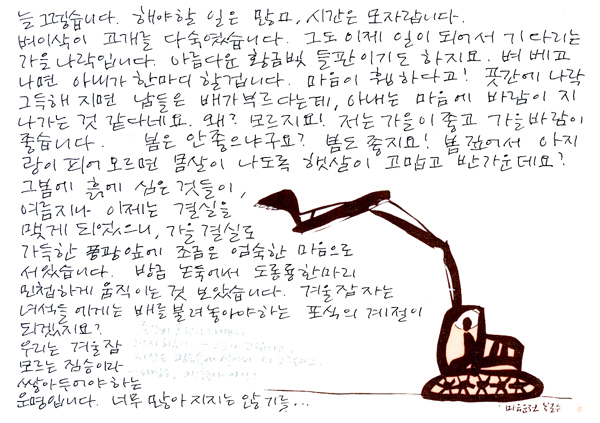 늘 그렇습니다. 해야할 일은 많고, 시간은 모자랍니다.
벼이삭이 고개를 다 숙였습니다. 그도 이제 일이 되어서 기다리는
가을 나락입니다. 아름다운 황금빛 들판이기도 하지요. 벼 베고
나면 아내가 한마디 할겁니다. 마음이 휑하다고! 곳간에 나락
그득해 지면 남들은 배가 부르다는데, 아내는 마음에 바람이 지
나가는 것 같다네요. 왜? 모르지요! 저는 가을이 좋고 가을바람이
좋습니다. 봄은 안 좋으냐구요? 봄도 좋지요! 봄 깊어서 아지
랑이 피어 오르면 몸살이 나도록 햇살이 고맙고 반가운데요?
그봄에 흙에 심은 것들이,
여름지나 이제는 결실을
맺게 되었으니, 가을 결실로
가득한 풍광앞에 조금은 엄숙한 마음으로
서있습니다. 방금 논둑에서 도롱룡한마리
민첩하게 움직이는 것 보았습니다. 겨울잠 자는
녀석들 에게는 배를 불려 놓아야하는 포식의 계절이
되겠지요?
우리는 겨울잠
모르는 짐승이라
쌓아두어야 하는
운명입니다. 너무 많아 지지는 않기를...